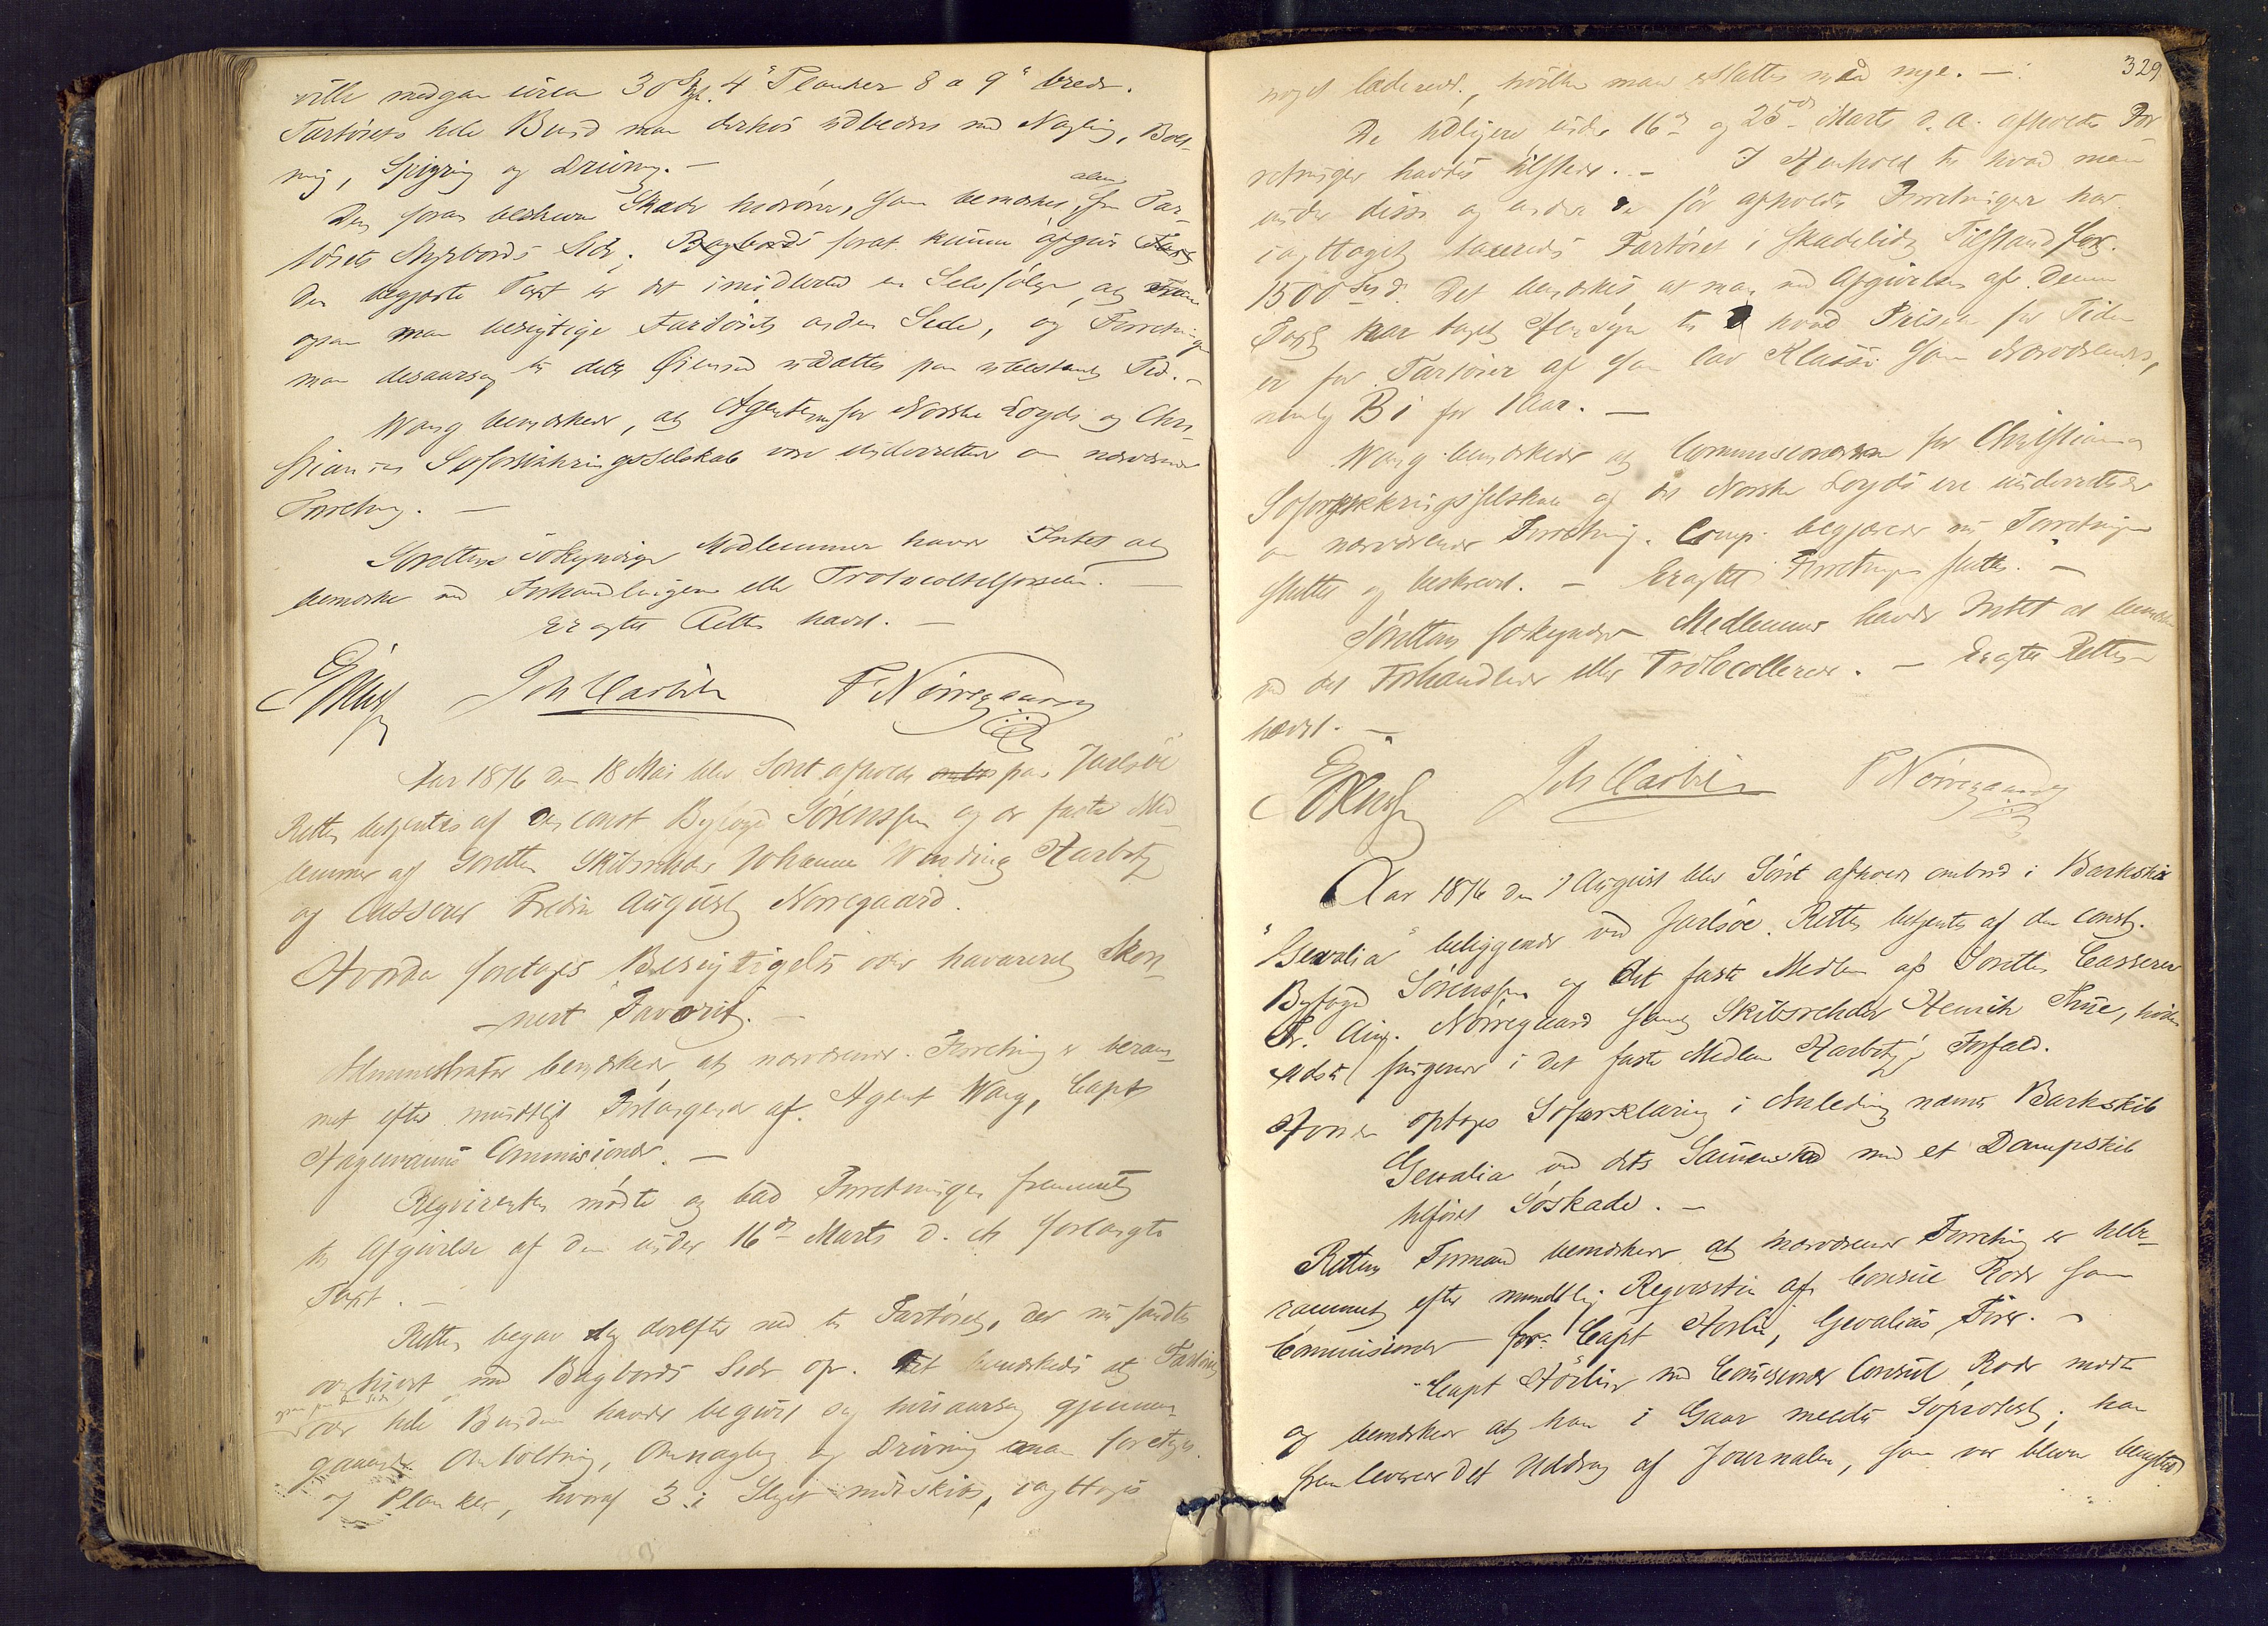 ville medgaa circa 30 4" Planker 8 a 9" brede.
Fartøiets hele Bund maa derhos udbedres med Nagling, Bolt-
ning, Spigring og Drivning. —
Den foran beskrevne Skade hidrører, som bemærket, alene fra Far-
tøiets Styrbords Side. Bagbords forat kunne afgive
Den begjærte Taxt er det imidlertid en Selvfølge, at
ogsaa maa besigtige Fartøiets anden Side, og Forretningen
maa desaarsag til dette Øiemed udsættes paa ubestemt Tid. —
Wang bemærkede, at Agenterne for Norske Loyds og Chri-
stiania Søforsikkringsselskab vare underrettede om nærværende
Forretning. —
Sørettens søkyndige Medlemmer havde Intet at
bemærke ved Forhandlingen eller Protocoltilførselen. —
Eragtet Retten hævet. —
Joh Harbitz F Nørregaard
Aar 1876 den 18 Mai blev Søret afholdt paa Jarlsøe
Retten betjentes af den const Byfoged Sørenssen og de faste Med-
lemmer af Søretten Skibsrheder Johannes Winding Harbitz
og Casserer Fredrik August Nørregaard.
Hvorda foretoges Besigtigelse over havareret Skon-
nert "Favorit". —
Administrator bemærkede at nærværende Forretning er beram-
met efter mundtligt Forlangende af Agent Wang, Capt
Hagemanns Commisionær. —
Reqvirenten mødte og bad Forretningen fremmet
til Afgivelse af den under 16de Marts d. A. forlangte
Taxt. —
Retten begav sig derefter ned til Fartøiet, der nu fandtes
med Bagbords Side op. Det bemærkedes at Fartøiet
ogsaa paa den Side
over hele Bunden havde begivet sig hvisaarsag gjennem-
gaaende Omboltning, Omnagling og Drivning maa foretages
og Planker, hvoraf 3 i Slaget midtskibs, iagttoges
329
noget læderede, hvilke maa erstattes med nye. —
De tidligere under 16de og 25de Marts d. A. afholdte For-
retninger havdes tilstede. — I Henhold til hvad man
under disse og under de før afholdte Forretninger har
iagttaget taxeredes Fartøiet i skadelidt Tilstand for
1500 Spd. Det bemærkes, at man ved Afgivelsen af denne
Taxt har taget Hensyn til hvad Prisen for Tiden
er for Fartøier af saa lav Klasse som Nærværende,
nemlig B 1 for 1 Aar. —
Wang bemærkede at Commissionærerne for Christiania
Søforsikkringsselskab og det Norske Loyds ere underrettede
om nærværende Forretning. Comp. begjærede nu Forretningen
sluttet og beskrevet. — Eragtet Forretningen sluttet. —
Sørettens søkyndige Medlemmer havde Intet at bemærke
ved det Forhandlede eller Protocollerede. — Eragtet Retten
hævet. —
Joh Harbitz F Nørregaard
Aar 1876 den 7 August blev Søret afholdt ombord i Barkskib
"Gevalia" beliggende ved Jarlsøe. Retten betjentes af den const.
Byfoged Sørenssen og det faste Medlem af Søretten Casserer
Fr. Aug. Nørregaard samt Skibsrheder Henrik Thue, hvilken
sidste fungerer i det faste Medlem Harbitz's Forfald.
Hvorda optoges Søforklaring i Anledning nævnte Barkskib
Gevalia ved dets Sammenstød med et Dampskib
tilføiet Søskade. —
Rettens Formand bemærkede at nærværende Forretning er bele-
rammet efter mundtlig Reqvisition af Consul Røder som
Commisionær for Capt Hörlin, Gevalias Fører. —
Capt Hörlin med Commisionær Consul Røder mødte
og bemærkede at han i Gaar meldte Søprotest; han
fremleverede det Uddrag af Journalen, som var bleven benyttet